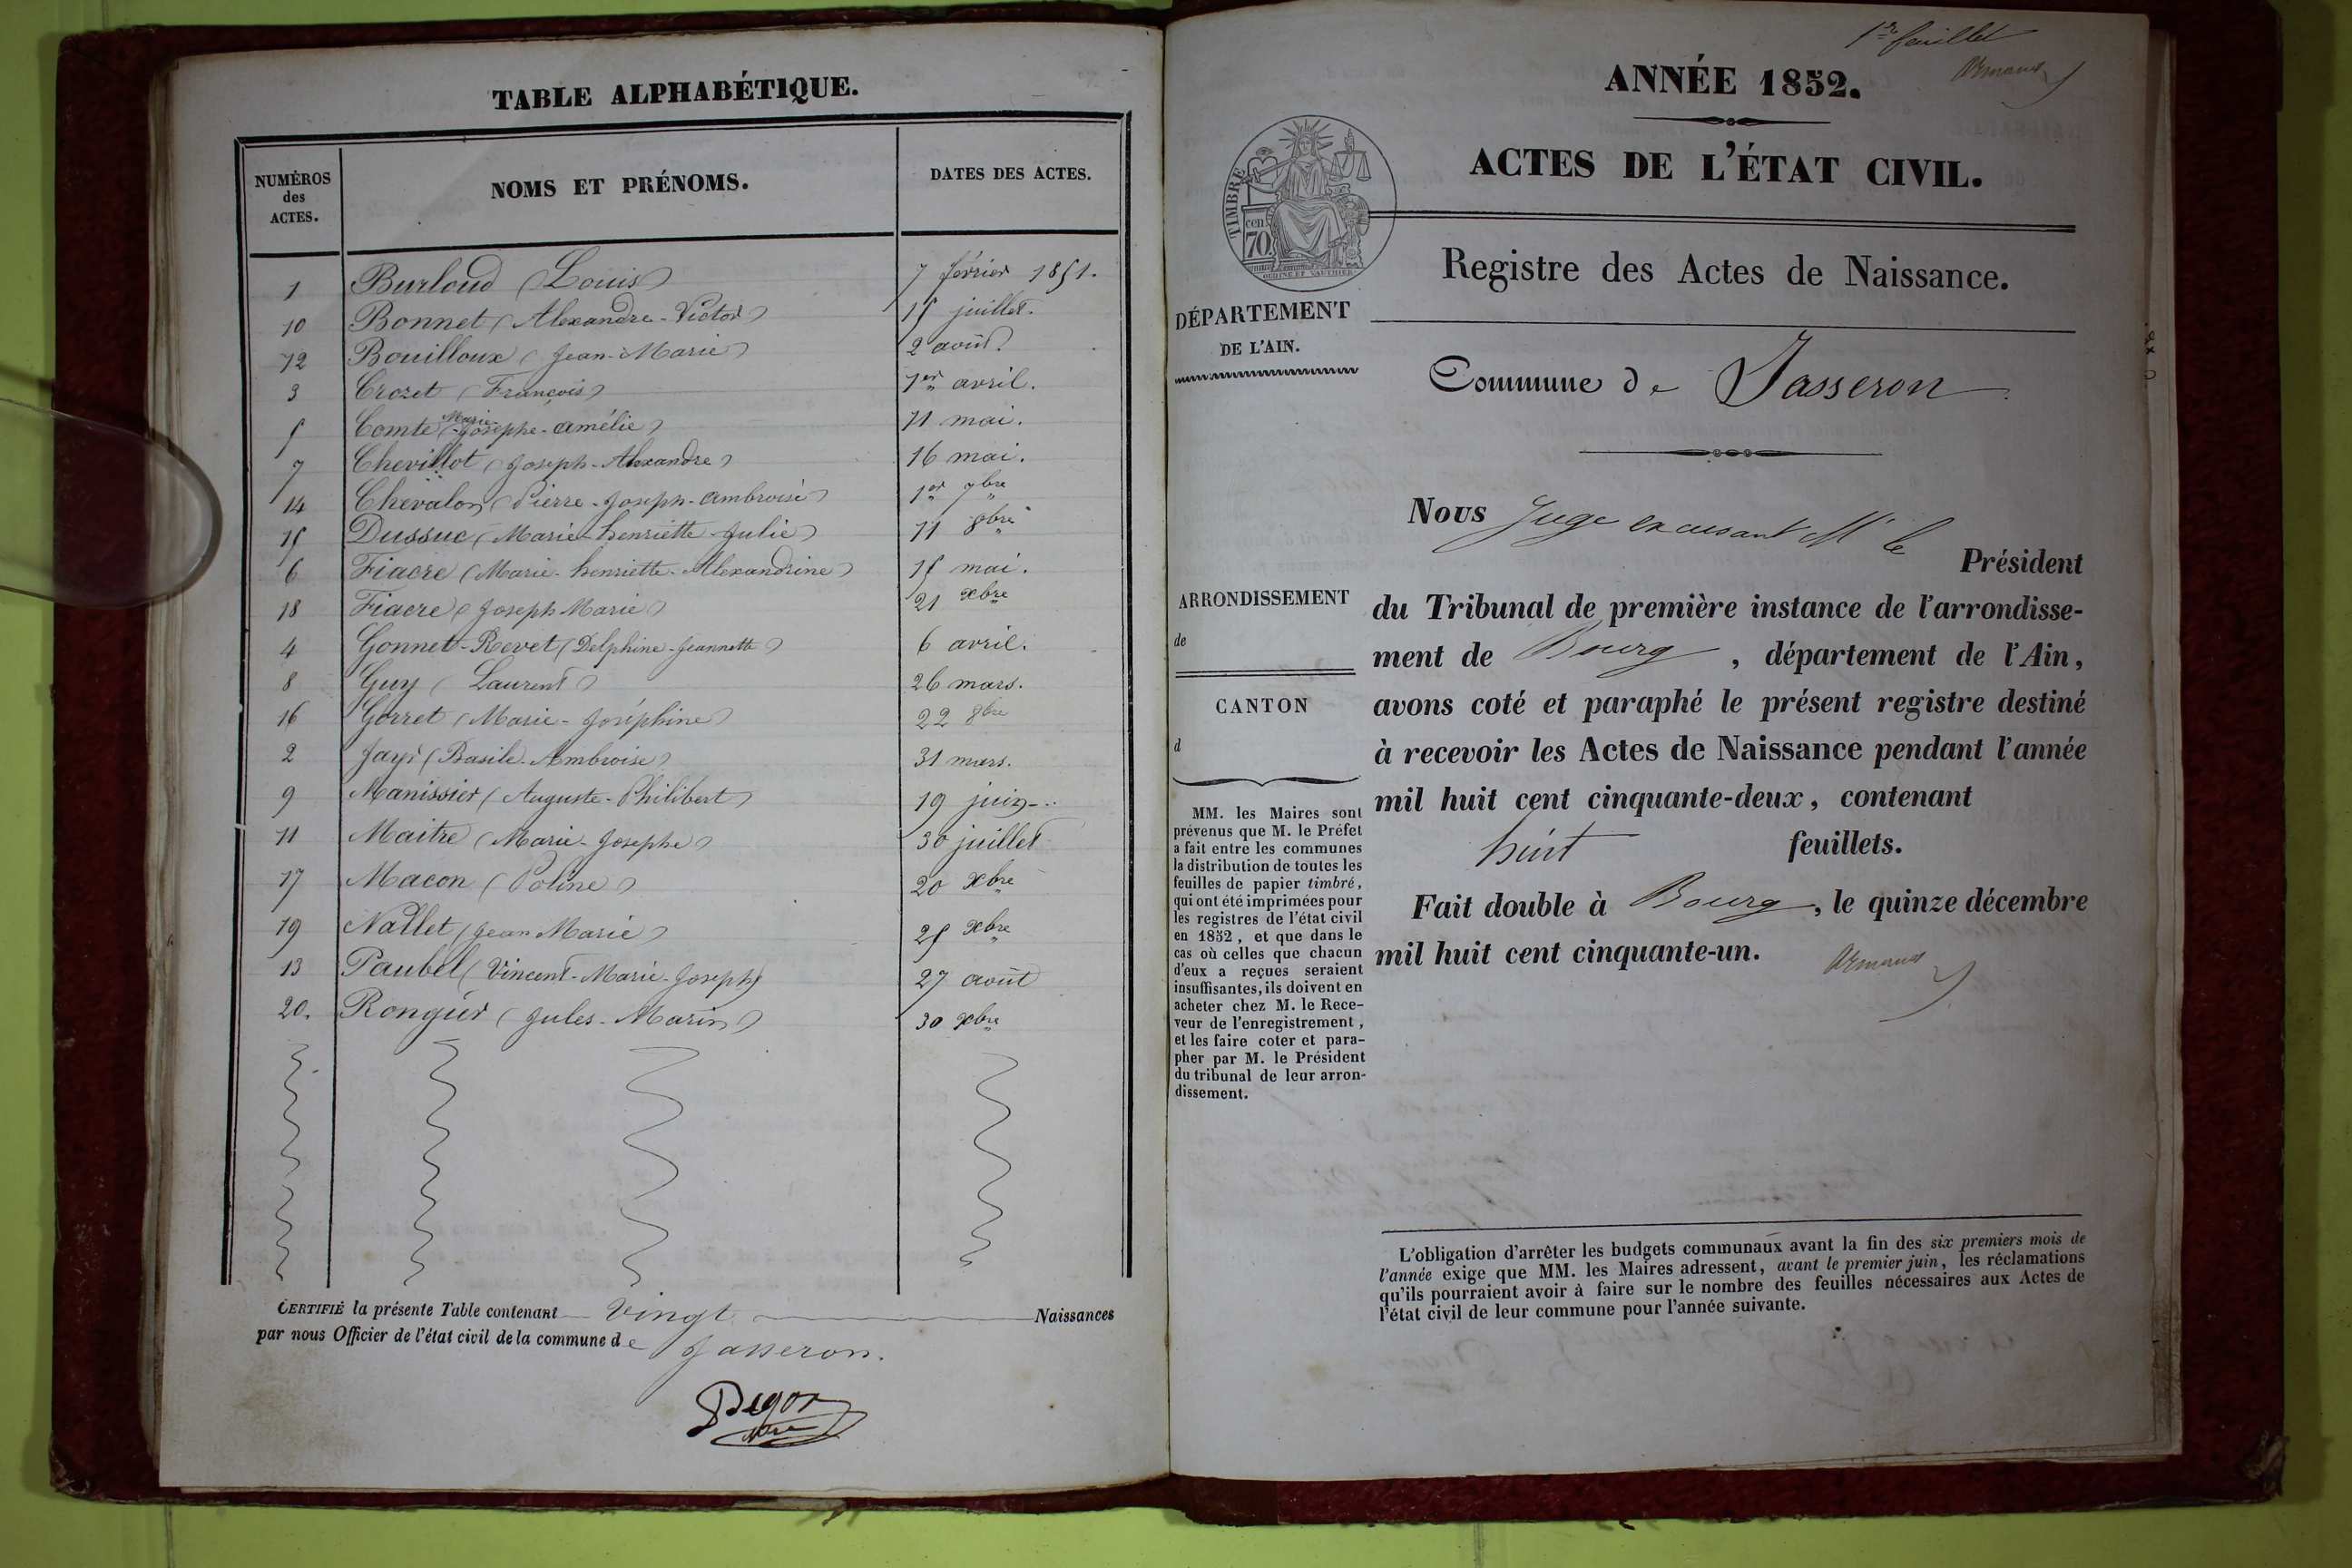 TABLE ALPHABÉTIQUE.
NUMÉROS des ACTES. NOMS ET PRÉNOMS. DATES DES ACTES.
1 Burloud (Louis) 7 février 1851.
10 Bonnet (Alexandre-Victor) 15 juillet.
12 Bouilloux (Jean-Marie) 2 août.
3 Crozet (François) 1er avril.
5 Comte (Marie-Josephe-Amélie) 11 mai.
7 Chevillot (Joseph-Alexandre) 16 mai.
14 Chevalon (Pierre-Joseph-Ambroise) 1er 7bre
15 Dussuc (Marie-henriette-Julie) 11 8bre
6 Fiacre (Marie-henriette-Alexandrine) 15 mai.
18 Fiacre (Joseph Marie) 21 xbre
4 Gonnet-Revet (Delphine-Jeannette) 6 avril.
8 Guy (Laurent) 26 mars.
16 Gorret (Marie-Joséphine) 22 8bre
2 Jayr (Basile-Ambroise) 31 mars.
9 Manissier (Auguste-Philibert) 19 juin
11 Maitre (Marie-Josephe) 30 juillet
17 Macon (Poline) 20 xbre
19 Nallet (Jean Marie) 25 xbre
13 Paubel (Vincent-Marie-Joseph) 27 août
20. Rongier (Jules-Marin) 30 xbre
CERTIFIÉ la présente Table contenant Vingt Naissances
par nous Officier de l'état civil de la commune de Jasseron.
1er feuillet
Armand
ANNÉE 1852.
ACTES DE L'ÉTAT CIVIL.
TIMBRE
70 cen
Registre des Actes de Naissance.
DÉPARTEMENT
DE L'AIN.
Commune de Jasseron
Nous Juge excusant Mr le
Président
ARRONDISSEMENT
de
CANTON
d
du Tribunal de première instance de l'arrondisse-
ment de Bourg, département de l'Ain,
avons coté et paraphé le présent registre destiné
à recevoir les Actes de Naissance pendant l'année
mil huit cent cinquante-deux, contenant
huit feuillets.
Fait double à Bourg, le quinze décembre
mil huit cent cinquante-un.
Armand
MM. les Maires sont
prévenus que M. le Préfet
a fait entre les communes
la distribution de toutes les
feuilles de papier timbré,
qui ont été imprimées pour
les registres de l'état civil
en 1852, et que dans le
cas où celles que chacun
d'eux a reçues seraient
insuffisantes, ils doivent en
acheter chez M. le Rece-
veur de l'enregistrement,
et les faire coter et para-
pher par M. le Président
du tribunal de leur arron-
dissement.
L'obligation d'arrêter les budgets communaux avant la fin des six premiers mois de
l'année exige que MM. les Maires adressent, avant le premier juin, les réclamations
qu'ils pourraient avoir à faire sur le nombre des feuilles nécessaires aux Actes de
l'état civil de leur commune pour l'année suivante.